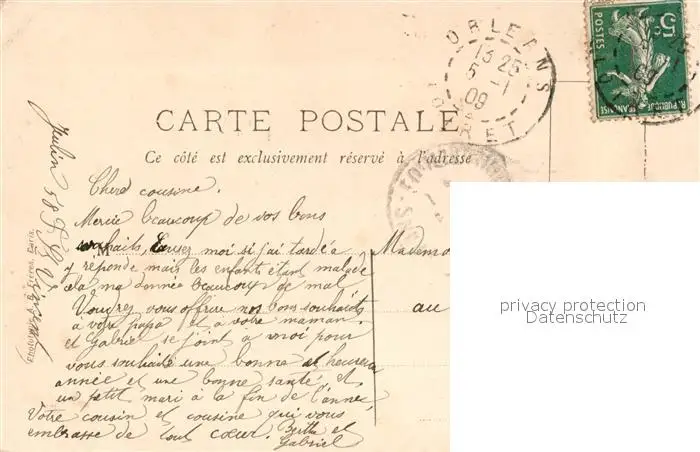 ORLEANS
13 25
5 - 1
09
LOIRET
5c
POSTES
REPUBLIQUE FRANÇAISE
CARTE POSTALE
Ce côté est exclusivement réservé à l'adresse
Cherd cousine.
Mercie beaucoup de vos bons
souhaits, Excusez moi si j'ai tardé a
y réponde mais les enfants étant malade
cla ma donnée beaucoup de mal
Voudrez vous offrire nos bons souhaits
a votre papa et a votre maman.
et Gabriel se joint a moi pour
vous souhaité une bonne et heureuse
année et une bonne santé, et
un petit mari à la fin de l'année,
Votre cousin et cousine qui vous
embrasse de tout cœur. Berthe et
Gabriel
M
Mademo
au
privacy protection
Datenschutz